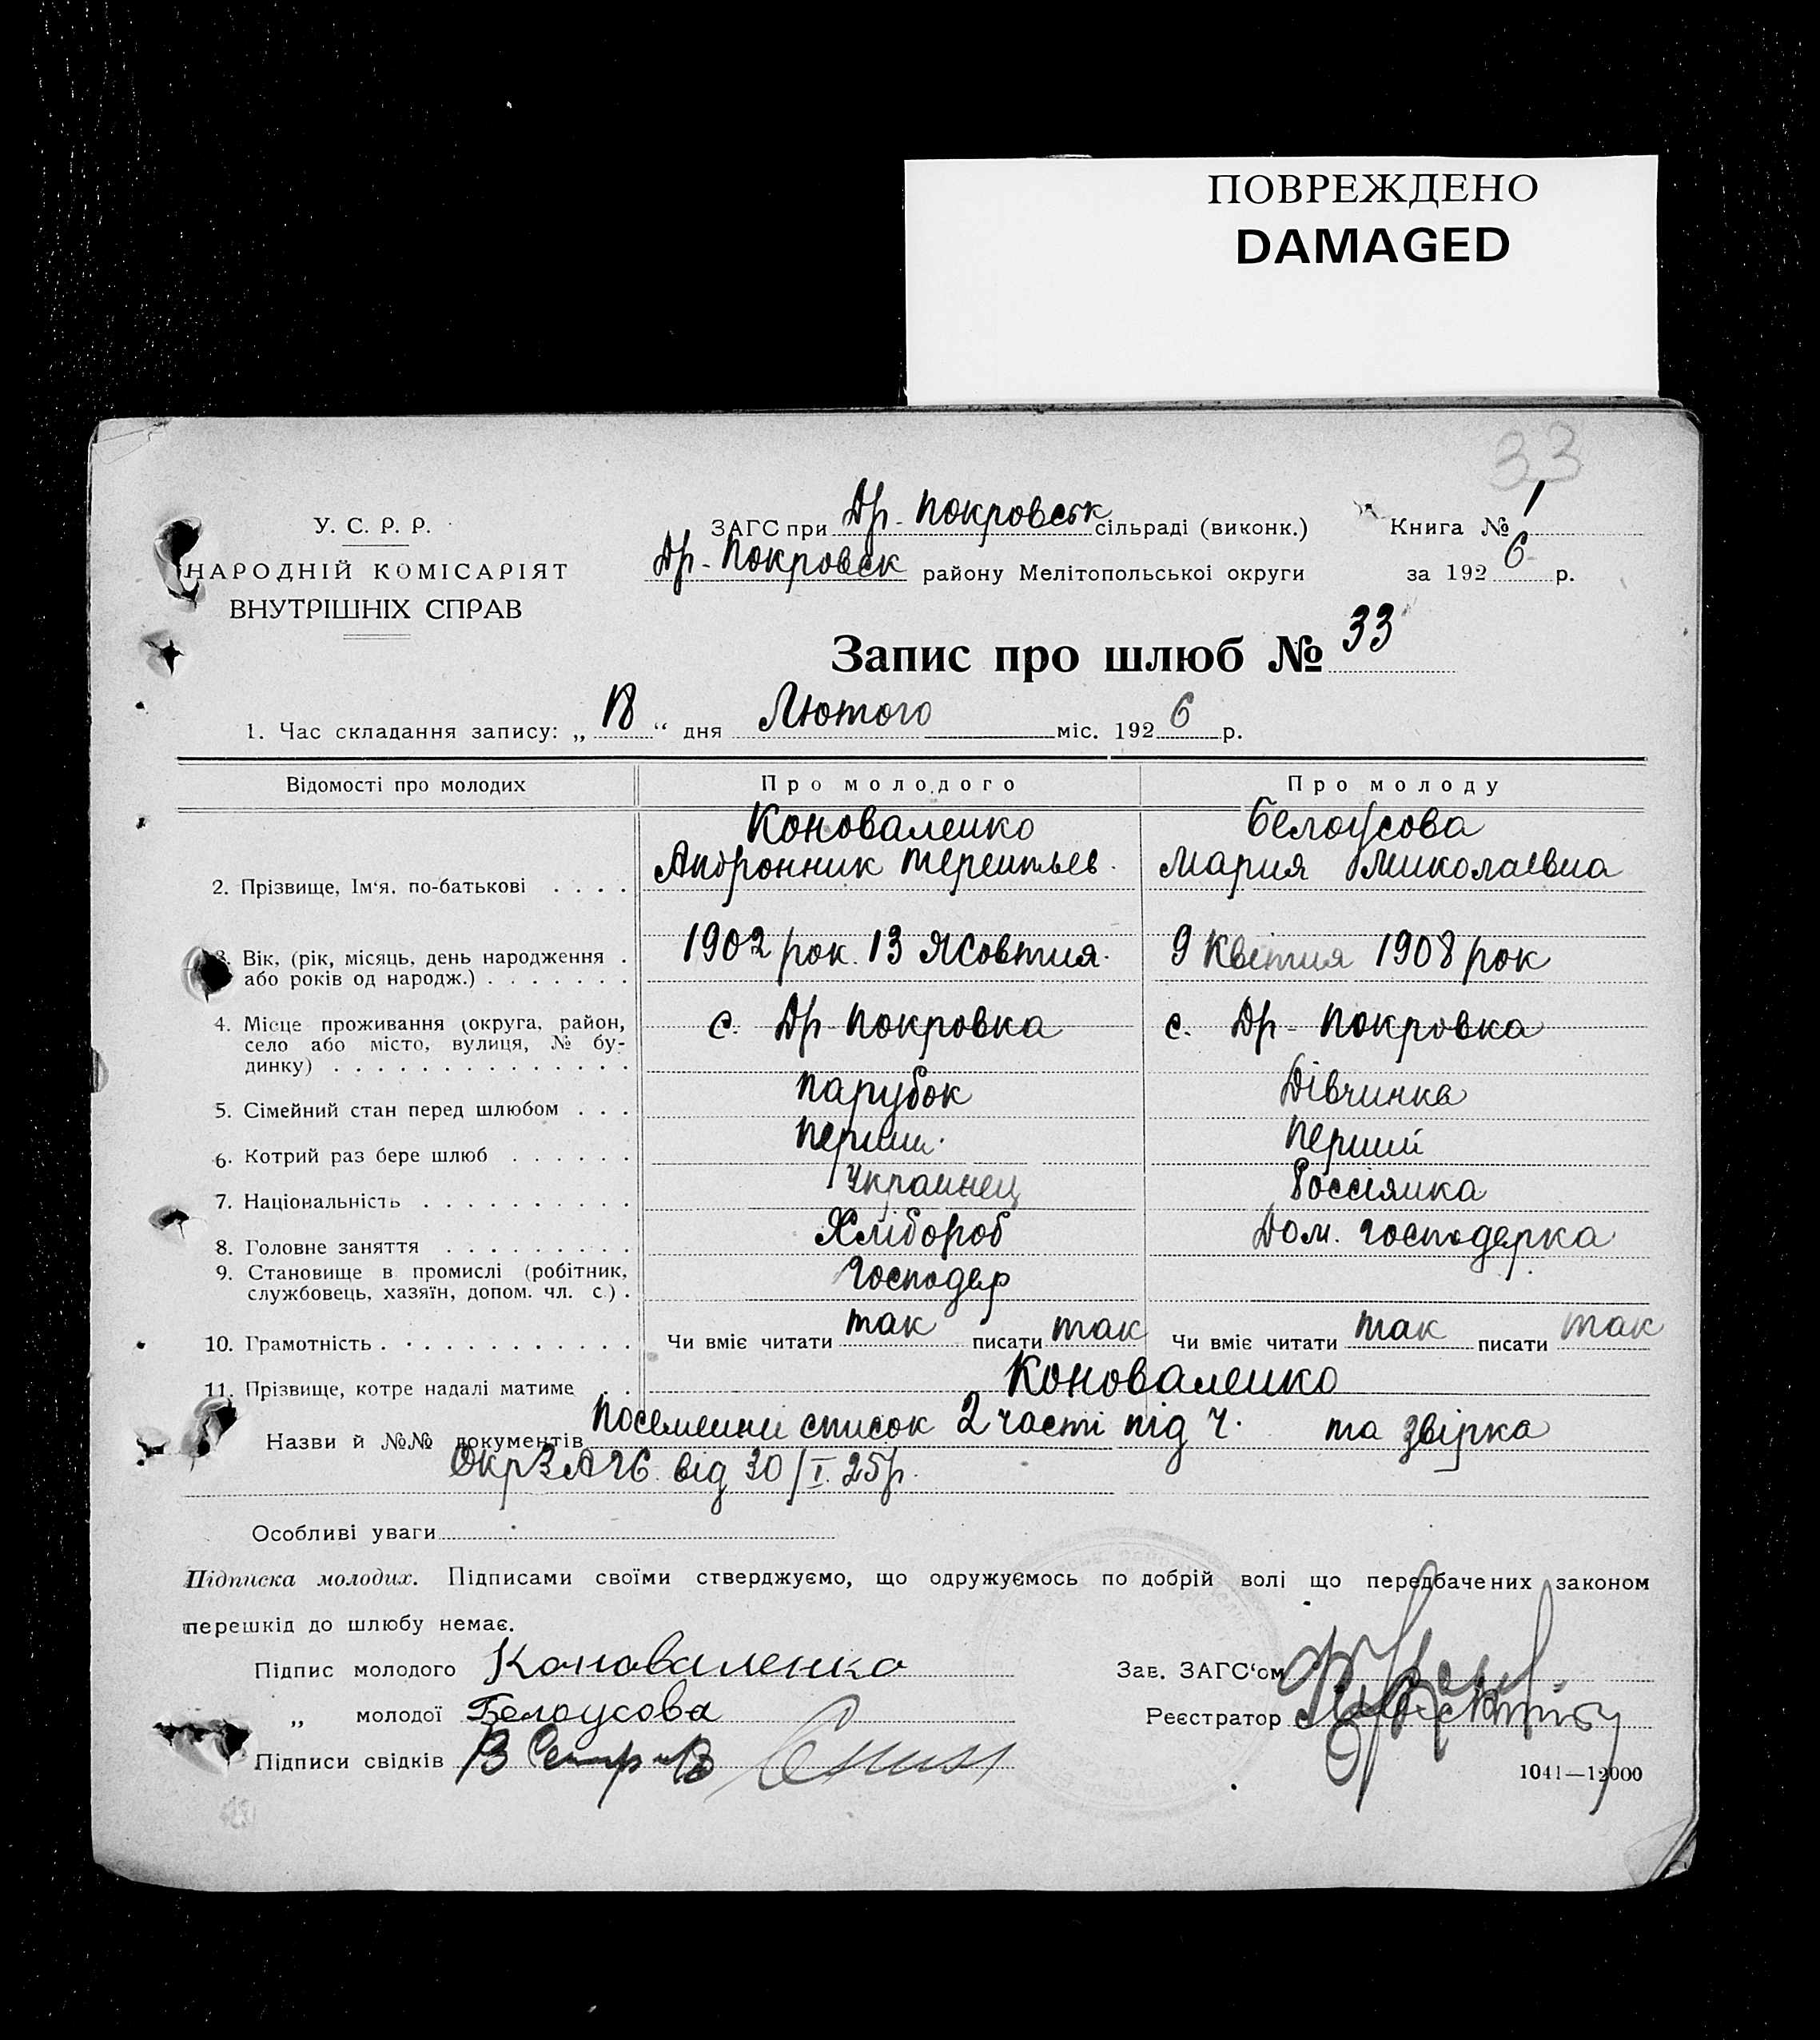 ПОВРЕЖДЕНО
DAMAGED
33
У. С. Р. Р.
НАРОДНІЙ КОМІСАРІЯТ
ВНУТРІШНІХ СПРАВ
ЗАГС при Др-Покровськ сільраді (виконк.)
Др-Покровск району Мелітопольської округи
Книга № 1
за 1926 р.
Запис про шлюб № 33
1. Час складання запису: „18“ дня Лютого міс. 1926 р.
Відомості про молодих Про молодого Про молоду
Коноваленко Белоусова
2. Прізвище, Ім‘я, по-батькові . . . . Андронник Терентьев. Мария Миколаевна
3. Вік, (рік, місяць, день народження . 1902 рок. 13 Жовтня. 9 Квітня 1908 рок
або років од народж.) . . . . . . .
4. Місце проживання (округа, район, с. Др-Покровка с. Др-Покровка
село або місто, вулиця, № бу-
динку) . . . . . . . . . . . . . .
5. Сімейний стан перед шлюбом . . . Парубок Дівчинка
6. Котрий раз бере шлюб . . . . . . Перший Перший
7. Національність . . . . . . . . . . Украинец Россіянка
8. Головне заняття . . . . . . . . . Хлібороб Дом. господерка
9. Становище в промислі (робітник, Господер
службовець, хазяїн, допом. чл. с.) .
10. Грамотність . . . . . . . . . . . . Чи вміє читати так писати так Чи вміє читати так писати так
11. Прізвище, котре надалі матиме . . Коноваленко
Назви й №№ документів Посемейни список 2 часті під ч. та звірка
ОкрЗАГС від 30/I. 25р.
Особливі уваги
Підписка молодих. Підписами своїми стверджуємо, що одружуємось по добрій волі що передбачених законом
перешкід до шлюбу немає.
Підпис молодого Коноваленко
„ молодої Белоусова
Підписи свідків
Зав. ЗАГС‘ом
Реєстратор
1041—12000